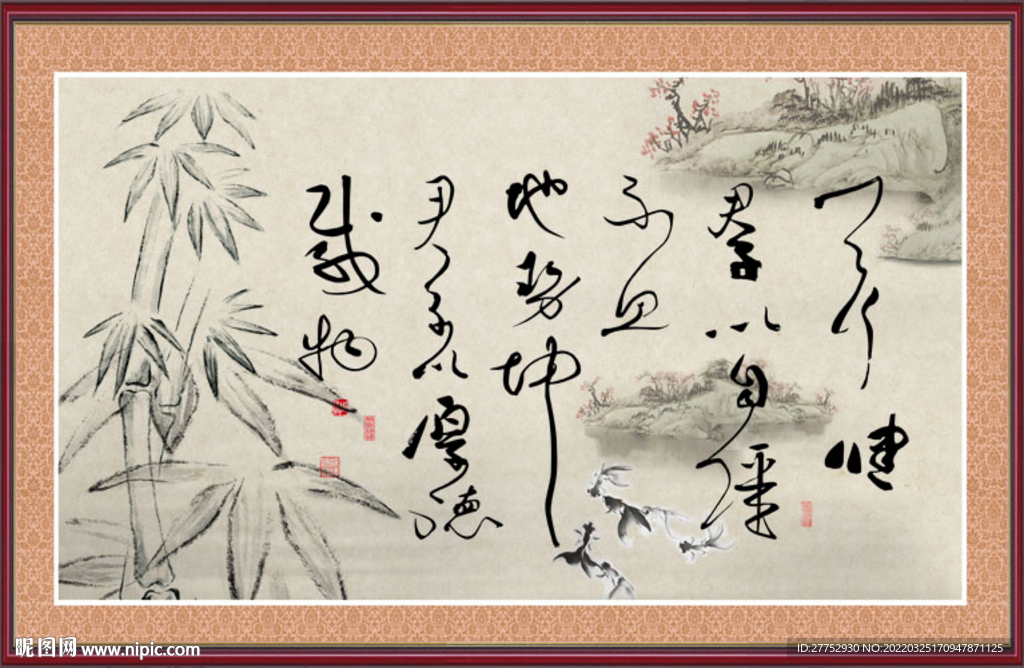 天行健
君子以自强
不息
地势坤
君子以厚德
载物
昵图网 www.nipic.com
ID:27752930 NO:20220325170947871125